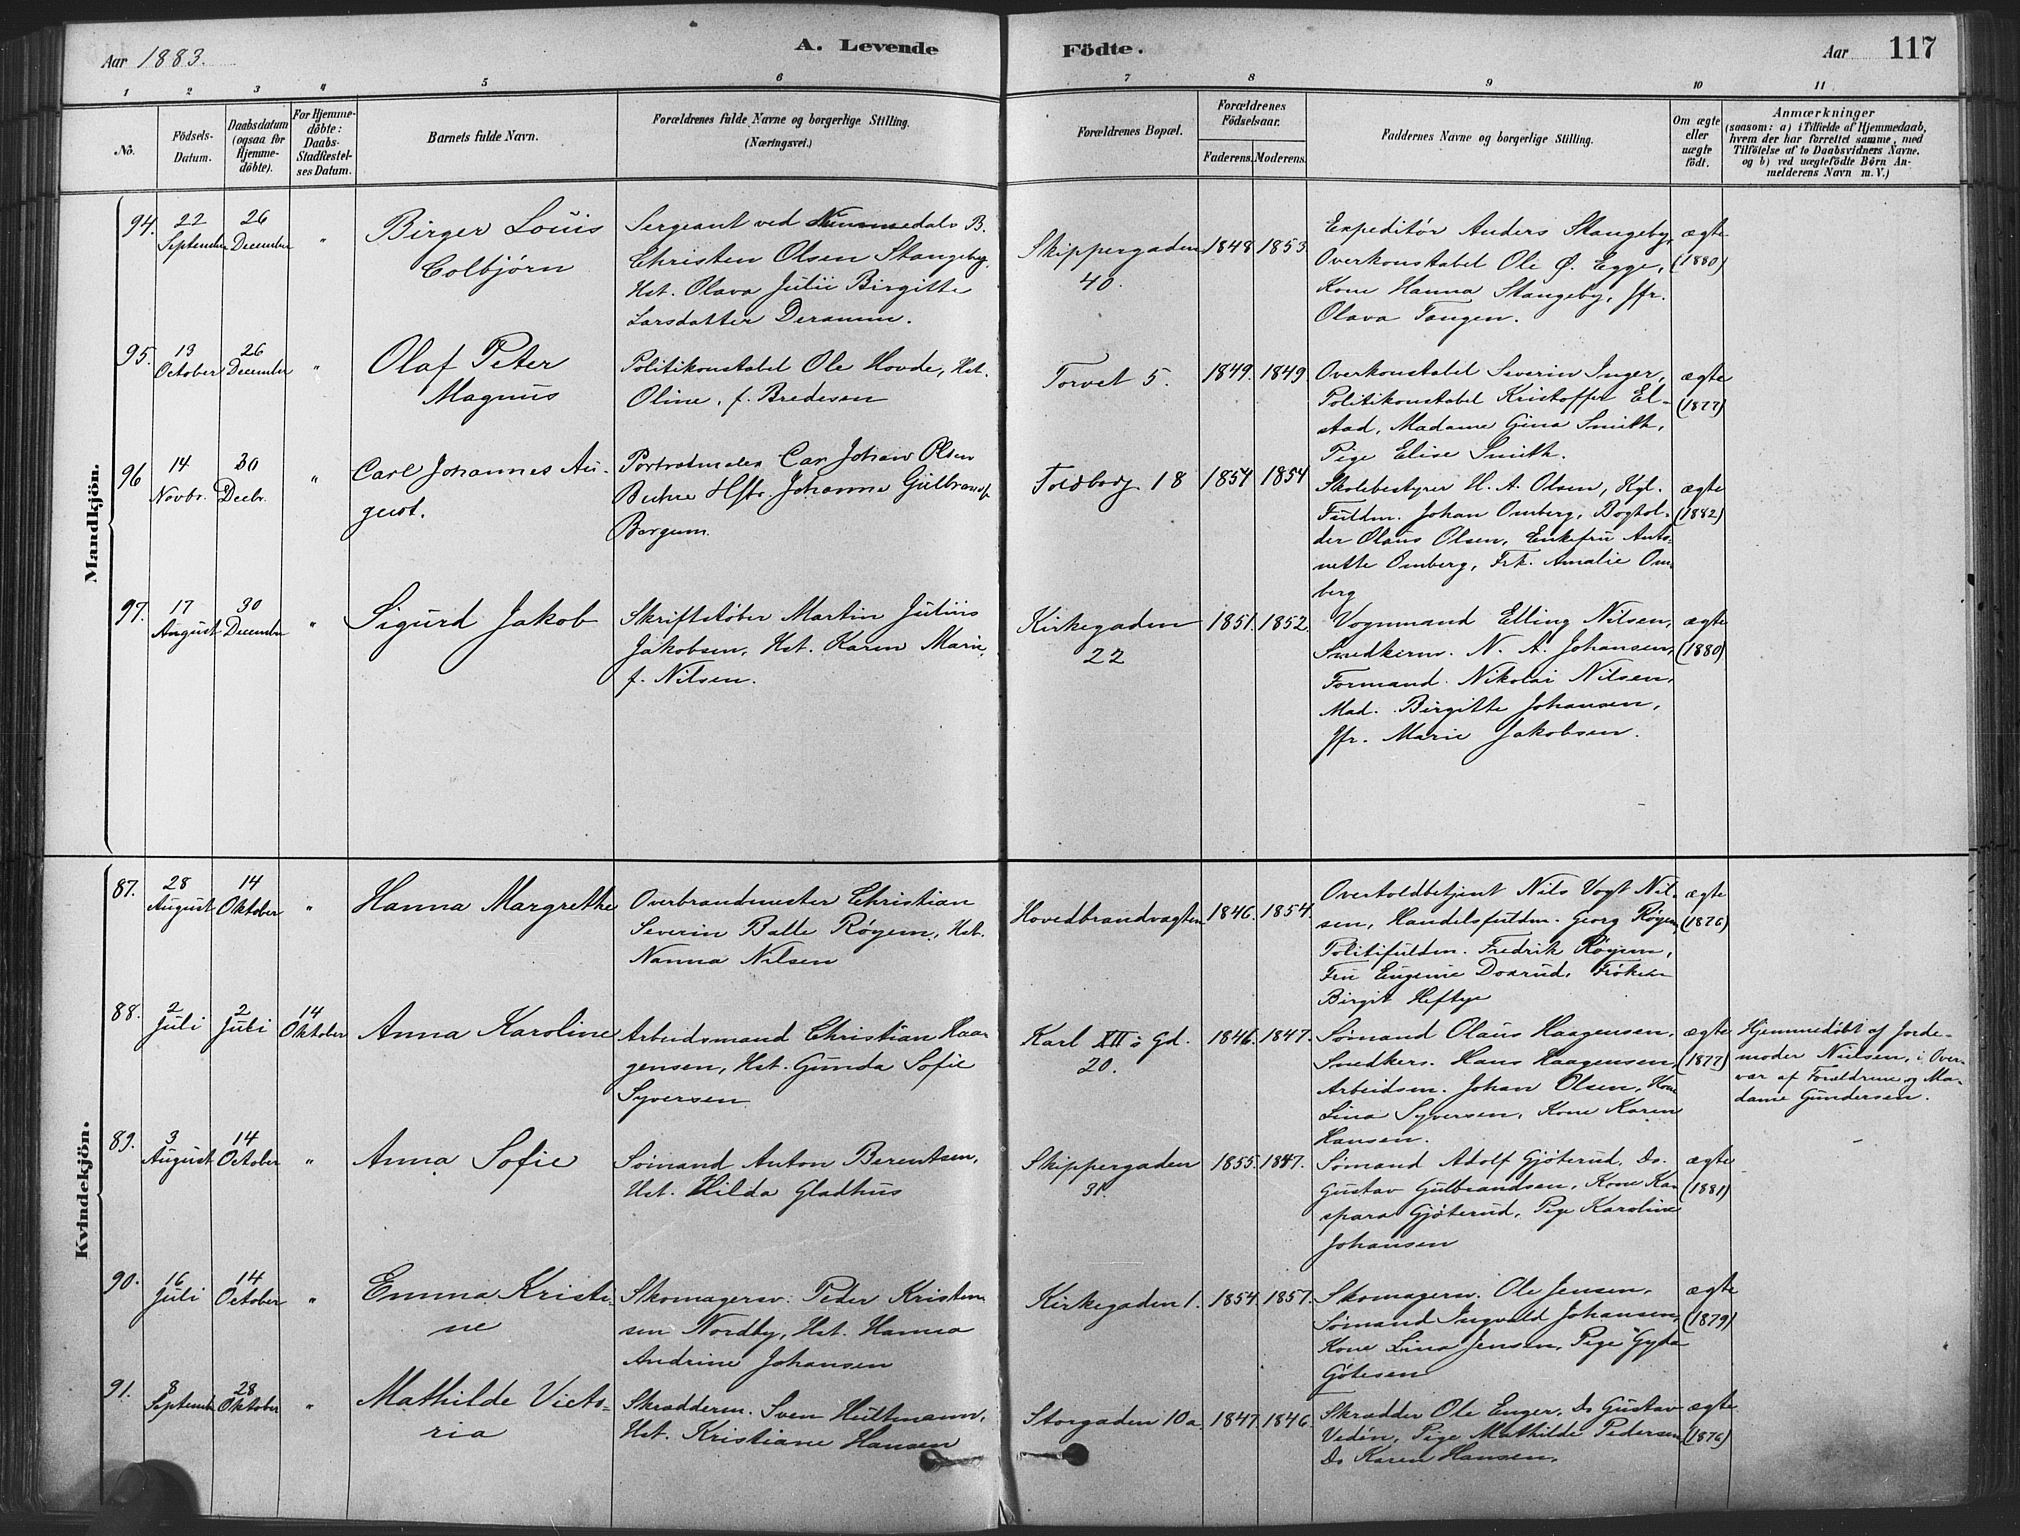 Aar 1883.
A. Levende
Födte.
Aar
117
1 2 3 4 5 6 7 8 9 10 11
No.
Födsels-
Datum.
Daabsdatum
(ogsaa for
Hjemme-
döbte).
For Hjemme-
döbte:
Daabs-
Stadfæstel-
ses Datum.
Barnets fulde Navn.
Forældrenes fulde Navne og borgerlige Stilling.
(Næringsvei.)
Forældrenes Bopæl.
Forældrenes
Födselsaar.
Faderens. Moderens.
Faddernes Navne og borgerlige Stilling.
Om ægte
eller
uægte
födt.
Anmærkninger
(saasom: a) i Tilfælde af Hjemmedaab,
hvem der har forrettet samme, med
Tilföielse af to Daabsvidners Navne,
og b) ved uægtefödte Börn An-
melderens Navn m. V.)
Mandkjön.
94.
22
September
26
December
"
Birger Louis
Colbjørn
Sergeant ved Nummedals B.
Christen Olsen Stangeby,
Hst. Olava Julie Birgitte
Larsdatter Deramm.
Skippergaden
40.
1848 1853
Expeditør Anders Stangeby,
Overkonstabel Ole Ø. Egge,
Kone Hanna Stangeby, Jfr.
Olava Tangen.
ægte
(1880)
95.
13
October
26
December
"
Olaf Peter
Magnus
Politikonstabel Ole Hovde, Hst.
Oline, f. Bredesen
Torvet 5.
1849. 1849
Overkonstabel Severin Inger,
Politikonstabel Kristoffer El-
stad, Madame Gina Smith,
Pige Elise Smith.
ægte
(1877)
96
14
Novbr.
30
Decbr.
"
Carl Johannes Au-
gust.
Portrætmaler Carl Johan Olsen
Hstr. Johanne Gulbrands.
Borgum.
Toldbodg 18
1854 1854
Skolebestyrer H. A. Olsen, Hgl.
Fuldm. Johan Omberg, Boghol-
der Olaus Olsen, Enkefru Anto-
nette Omberg, Frk. Amalie Om-
berg
ægte
(1882)
97.
17
August
30
December
"
Sigurd Jakob
Skriftstøber Martin Julius
Jakobsen, Hst. Karen Marie,
f. Nilsen.
Kirkegaden
22
1851. 1852.
Vognmand Elling Nilsen,
Snedkerm. N. A. Johansen,
Formand. Nikolai Nilsen,
Mad. Birgitte Johansen,
Jfr. Marie Jakobsen.
ægte
(1880)
Kvindekjön.
87.
28
August
14
Oktober
"
Hanna Margrethe
Overbrandmester Christian
Severin Balle Røyem, Hst.
Nanna Nilsen
Hovedbrandvagten
1846. 1854.
Overtoldbetjent Nils Vogt Nil-
sen, Handelsfuldm. Georg Røyem,
Politifuldm. Fredrik Røyem,
Fru Eugenie Dosrud, Frøken
Birgit Heftye
ægte
(1876)
88.
2
Juli
2
Juli
14
Oktober
Anna Karoline
Arbeidsmand Christian Haa-
gensen, Hst. Gunda Sofie
Syversen
Karl XII's Gd.
20.
1846. 1847.
Sømand Olaus Haagensen,
Snedkers. Hans Haagensen,
Arbeidsm. Johan Olsen, Kone
Lina Syversen, Kone Karen
Hansen.
ægte
(1877)
Hjemmedøbt af Jorde-
moder Nielsen, i Over-
vær af Forældrene og Ma-
dame Gundersen.
89.
3
August
14
October
"
Anna Sofie
Sømand Anton Berentsen,
Hst. Hilda Gladhus
Skippergaden
31.
1855. 1847.
Sømand Adolf Gjøterud, Do.
Gustav Gulbrandsen, Kone Ka-
spara Gjøterud, Pige Karoline
Johansen
ægte
(1881)
90.
16
Juli
14
October
"
Emma Kristi-
ne
Skomagersv. Peder Kristen-
sen Nordby, Hst. Hanna
Andrine Johansen
Kirkegaden 1.
1854. 1857.
Skomagerm. Ole Jensen,
Sømand Ingvald Johansen,
Kone Lina Jensen, Pige Gyda
Gøtesen
ægte
(1879)
91.
8
September
28
Oktober
"
Mathilde Victo-
ria
Skrædderm. Sven Hultmann,
Hst. Kristiane Hansen
Storgaden 10a
1847. 1846.
Skrædder Ole Enger, Do Gustav
Vedén, Pige Mathilde Pedersen
Do Karen Hansen.
ægte
(1876)